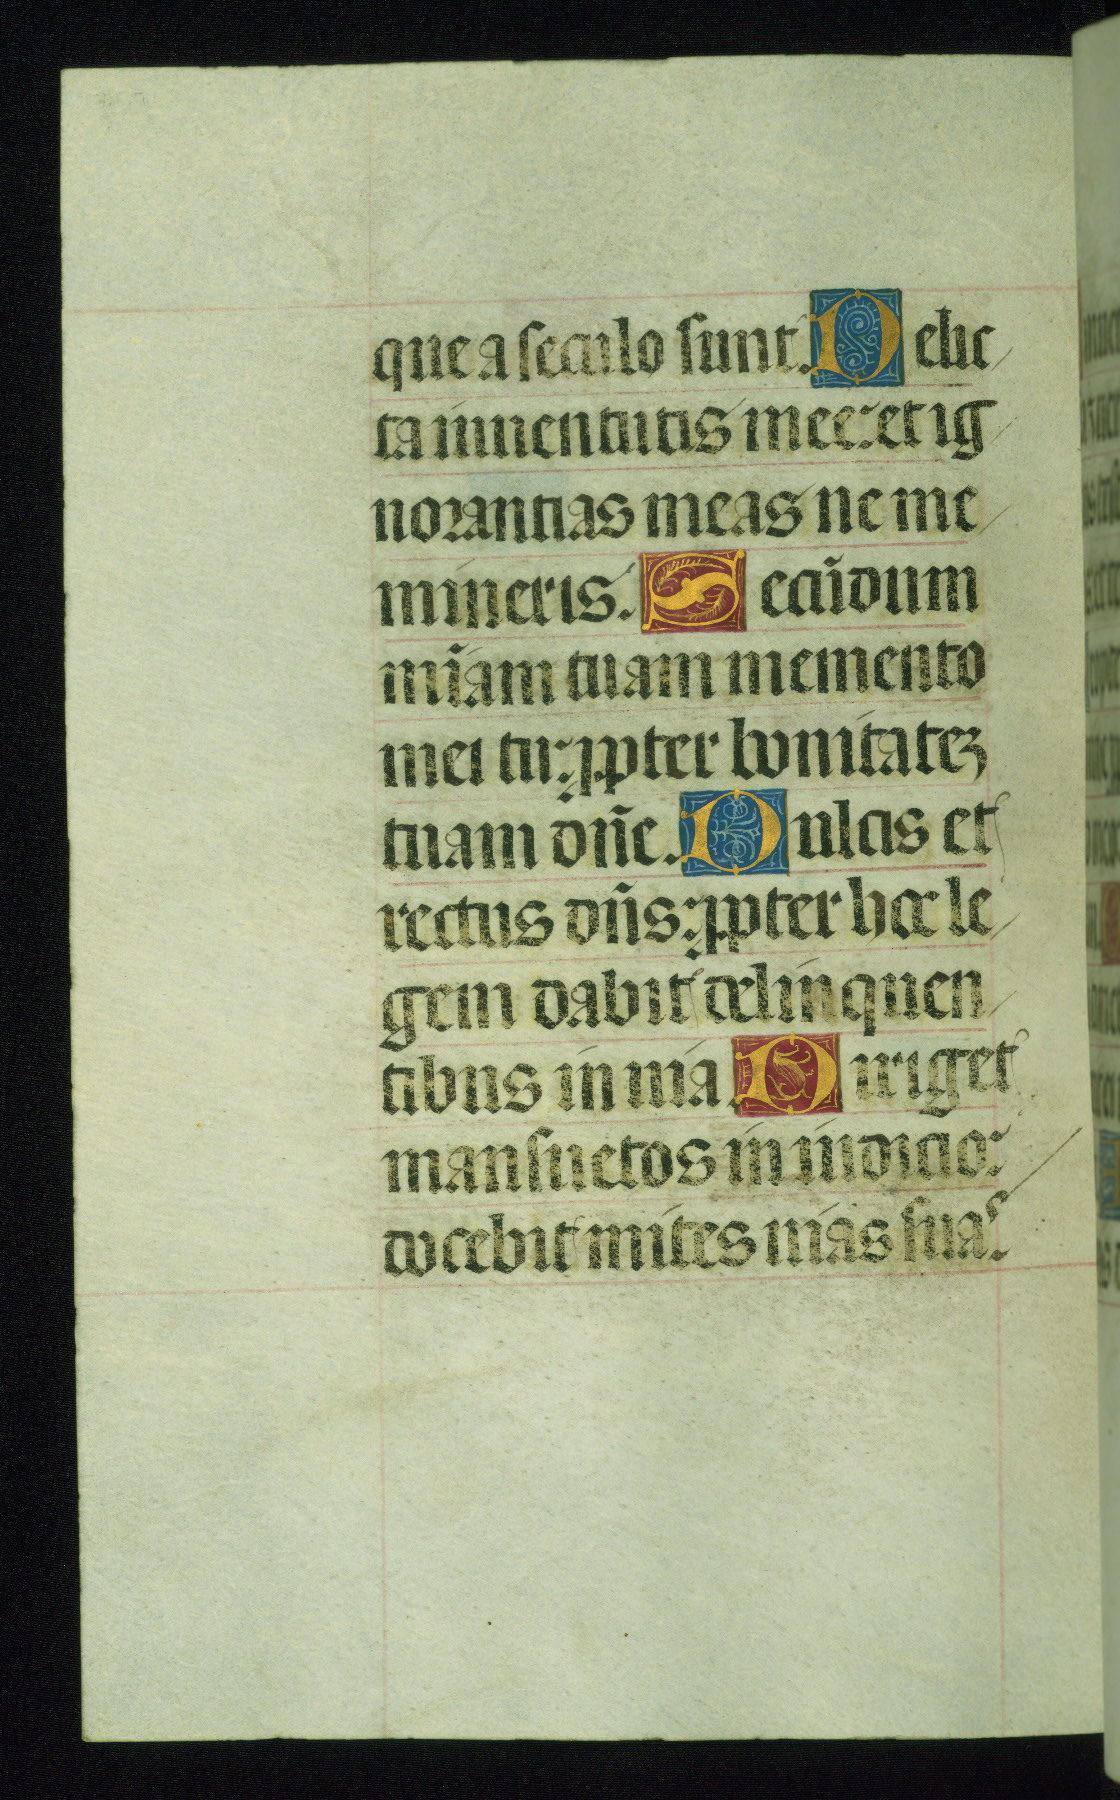 que a seculo sunt. Delic
ta iuuentutis mee: et ig
norantias meas ne me
mineris. Secūdum
mīam tuam memento
mei tu: ꝓpter bonitatez
tuam dn̄e. Dulcis et
rectus dn̄s: ꝓpter hoc le
gem dabit delinquen
tibus in uia. Diriget
mansuetos in iudicio:
docebit mites uias suas.